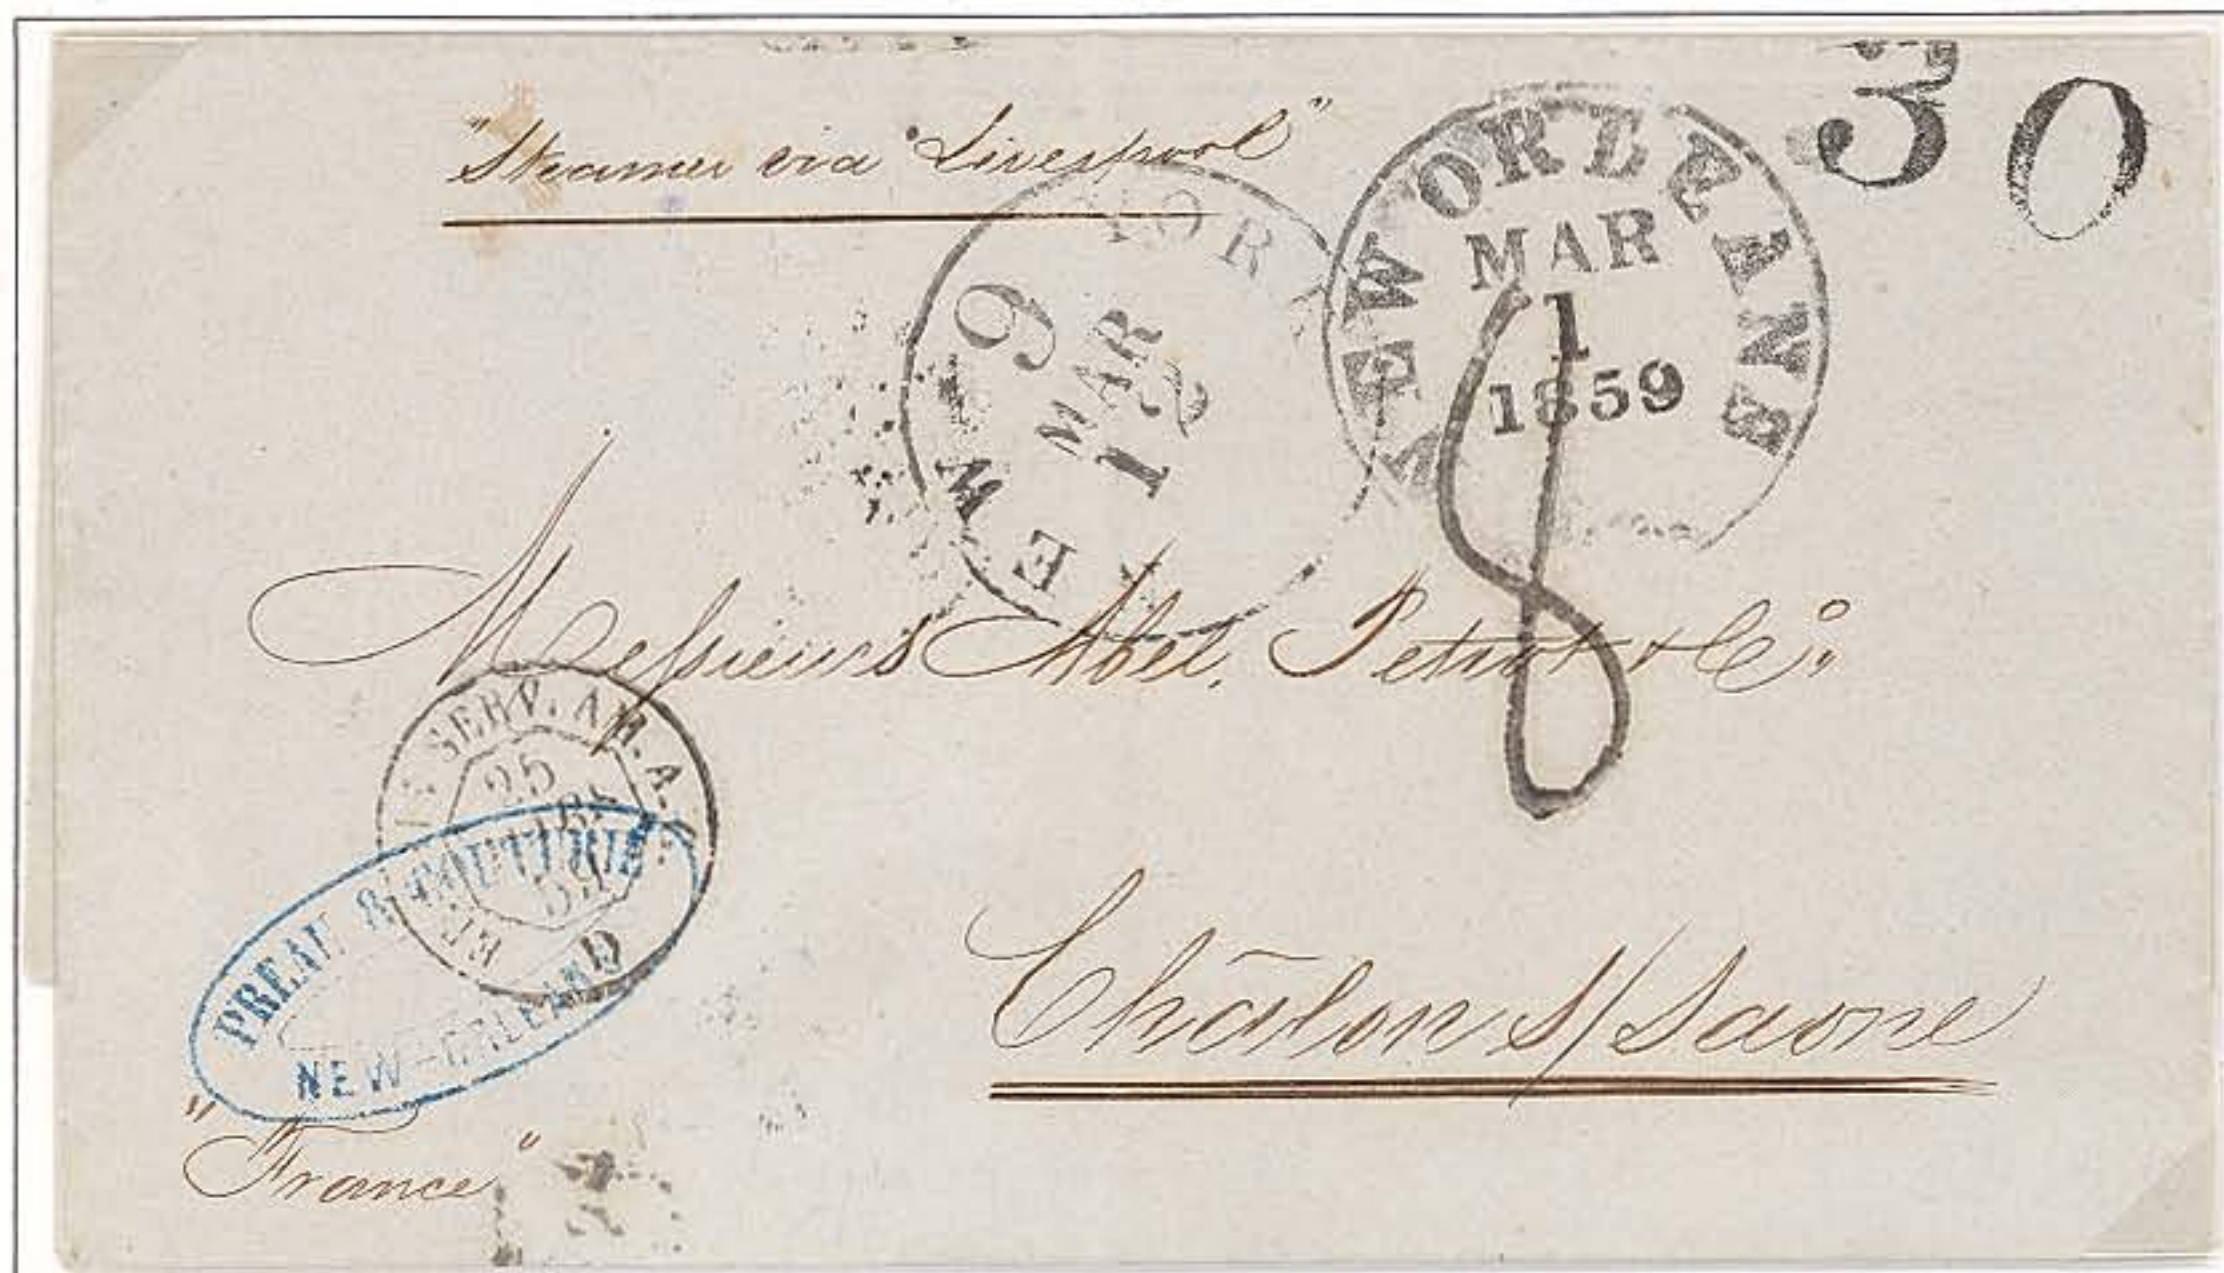 30
"Steamer via Liverpool"
NEW ORLEANS
MAR
1
1859
NEW YORK
9
MAR
12
8
Messieurs Abel, Petiot & Co.
SERV. AM. A.
25
59
D
PREAU & COUTURIE
NEW-ORLEANS
Châlon s/Saone
"France"